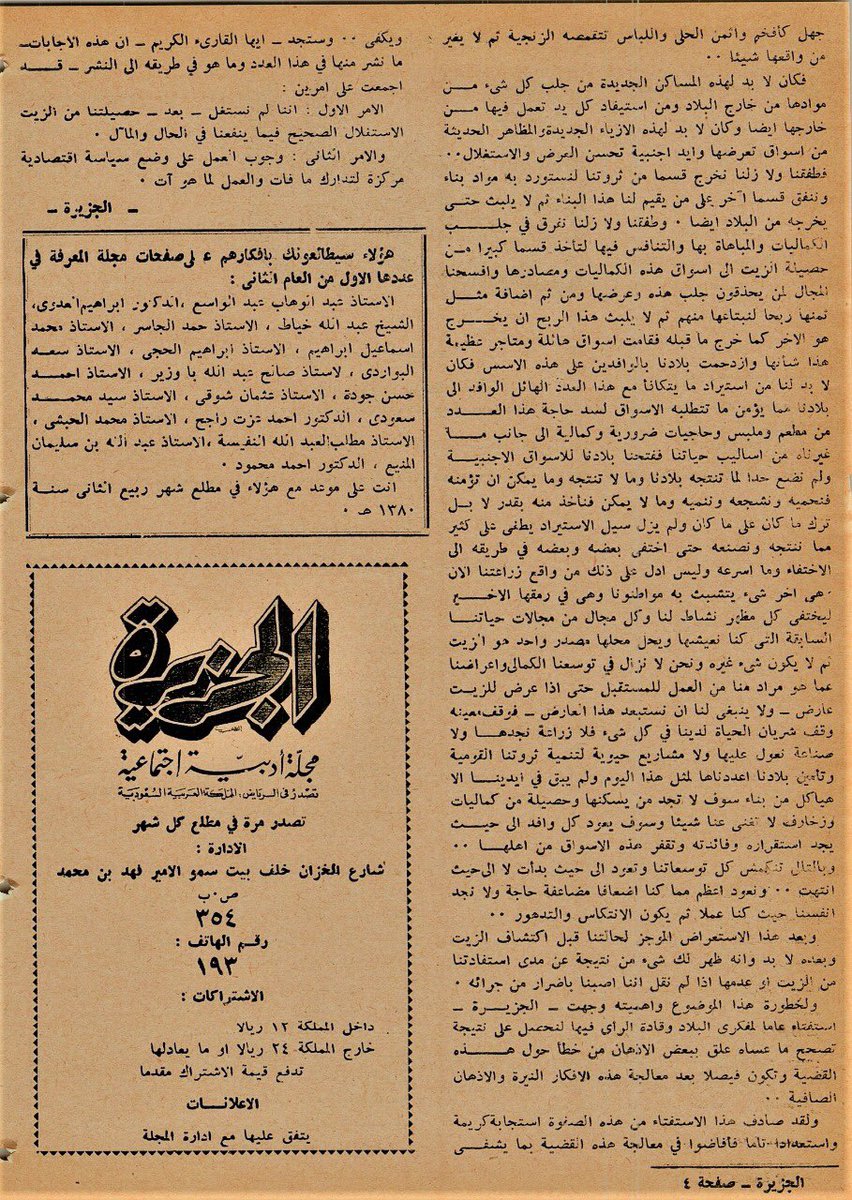 جهل كأفخم واثمن الحلى واللباس تتقمصه الزنجية ثم لا يغير
من واقعها شيئا ٠٠
فكان لا بد لهذه المساكن الجديدة من جلب كل شىء مــن
موادها من خارج البلاد ومن استيفاد كل يد تعمل فيها مــن
خارجها ايضا وكان لا بد لهذه الازياء الجديدة والمظاهر الحديثة
من اسواق تعرضها وايد اجنبية تحسن العرض والاستغلال٠٠
فطفقنا ولا زلنا نخرج قسما من ثروتنا لنستورد به مواد بناء
وننفق قسما آخر على من يقيم لنا هذا البناء ثم لا يلبث حتـى
يخرجه من البلاد ايضا ٠ وطفقنا ولا زلنا نغرق في جلــب
الكماليات والمباهاة بها والتنافس فيها لتأخذ قسما كبيرا مـن
حصيلة الزيت الى اسواق هذه الكماليات ومصادرها وافسحنا
المجال لمن يحذقون جلب هذه وعرضها ومن ثم اضافة مثــل
ثمنها ربحا لنبتاعها منهم ثم لا يلبث هذا الربح ان يخــرج
هو الاخر كما خرج ما قبله فقامت اسواق هائلة ومتاجر عظيمة
هذا شأنها وازدحمت بلادنا بالوافدين على هذه الاسس فكان
لا بد لنا من استيراد ما يتكافأ مع هذا العدد الهائل الوافد الى
بلادنا مما يؤمن ما تتطلبه الاسواق لسد حاجة هذا العــدد
من مطعم وملبس وحاجيات ضرورية وكمالية الى جانب مــا
غيرناه من اساليب حياتنا ففتحنا بلادنا للاسواق الاجنبيــة
ولم نضع حدا لما تنتجه بلادنا وما لا تنتجه وما يمكن ان تؤمنه
فنحميه ونشجعه وننميه وما لا يمكن فنأخذ منه بقدر لا بــل
ترك ما كان على ما كان ولم يزل سيل الاستيراد يطغى على كثير
مما ننتجه ونصنعه حتى اختفى بعضه وبعضه في طريقه الى
الاختفاء وما اسرعه وليس ادل على ذلك من واقع زراعتنا الان
هى اخر شىء يتشبث به مواطنونا وهى في رمقها الاخــير
ليختفى كل مظهر نشاط لنا وكل مجال من مجالات حياتنــا
السابقة التى كنا نعيشها ويحل محلها مصدر واحد هو الزيت
ثم لا يكون شىء غيره ونحن لا نزال في توسعنا الكمالى واعراضنا
عما هو مراد منا من العمل للمستقبل حتى اذا عرض للزيــت
عارض ــ ولا ينبغى لنا ان نستبعد هذا العارض ــ فوقف معينه
وقف شريان الحياة لدينا في كل شىء فلا زراعة نجدهــا ولا
صناعة نعول عليها ولا مشاريع حيوية لتنمية ثروتنا القومية
وتأمين بلادنا اعددناها لمثل هذا اليوم ولم يبق في ايدينــا الا
هياكل من بناء سوف لا تجد من يسكنها وحصيلة من كماليات
وزخارف لا تغنى عنا شيئا وسوف يعود كل وافد الى حيــث
يجد استقراره وفائدته وتقفر هذه الاسواق من اهلهـا ٠٠
وبالتالى تنكمش كل توسعاتنا وتعود الى حيث بدأت لا الى حيث
انتهت ٠٠ ونعود اعظم مما كنا اضعافا مضاعفة حاجة ولا نجد
انفسنا حيث كنا عملا ثم يكون الانتكاس والتدهور ٠٠
وبعد هذا الاستعراض الموجز لحالتنا قبل اكتشاف الزيت
وبعده لا بد وانه ظهر لك شىء من نتيجة عن مدى استفادتنا
من الزيت او عدمها اذا لم نقل اننا اصبنا باضرار من جرائه ٠
ولخطورة هذا الموضوع واهميته وجهت ــ الجزيــرة ــ
استفتاء عاما لمفكرى البلاد وقادة الرأى فيها لنحصل على نتيجة
تصحح ما عساه علق ببعض الاذهان من خطأ حول هــــذه
القضية وتكون فيصلا بعد معالجة هذه الافكار النيرة والاذهان
الصافية ٠٠
ولقد صادف هذا الاستفتاء من هذه الصفوة استجابة كريمة
واستعدادا تاما فأفاضوا في معالجة هذه القضية بما يشفــى
الجزيرة ــ صفحة ٤
ويكفى ٠٠ وستجد ــ ايها القارىء الكريم ــ ان هذه الاجابات ــ
ما نشر منها في هذا العدد وما هو في طريقه الى النشر ــ قــد
اجمعت على امرين ٠
الامر الاول : اننا لم نستغل ــ بعد ــ حصيلتنا من الزيت
الاستغلال الصحيح فيما ينفعنا في الحال والمآل ٠
والامر الثانى : وجوب العمل على وضع سياسة اقتصادية
مركزة لتدارك ما فات والعمل لما هو آت ٠
ــ الجزيرة ــ
هؤلاء سيطالعونك بافكارهم على صفحات مجلة المعرفة في
عددها الاول من العام الثانى :
الاستاذ عبد الوهاب عبد الواسع ، الدكتور ابراهيم العدوى،
الشيخ عبد الله خياط ، الاستاذ حمد الجاسر ، الاستاذ محمد
اسماعيل ابراهيم ، الاستاذ ابراهيم الحجى ، الاستاذ سعد
البواردى ، لاستاذ صالح عبد الله با وزير ، الاستاذ احمـد
حسن جودة ، الاستاذ عثمان شوقى ، الاستاذ سيد محمــد
سعودى ، الدكتور احمد عزت راجح ، الاستاذ محمد الحبشى ،
الاستاذ مطلب العبد الله النفيسة ، الاستاذ عبد الله بن سليمان
المنيع ، الدكتور احمد محمود ٠
انت على موعد مع هؤلاء في مطلع شهر ربيع الثانى سنـة
١٣٨٠ هـ ٠
الجزيرة
مجلة أدبية اجتماعية
تصدر فى الرياض، المملكة العربية السعودية
تصدر مرة في مطلع كل شهر
الادارة :
شارع الخزان خلف بيت سمو الامير فهد بن محمد
ص٠ب
٣٥٤
رقم الهاتف :
١٩٣
الاشتراكات :
داخل المملكة ١٢ ريالا
خارج المملكة ٢٤ ريالا او ما يعادلها
تدفع قيمة الاشتراك مقدما
الاعلانــات
يتفق عليها مع ادارة المجلة